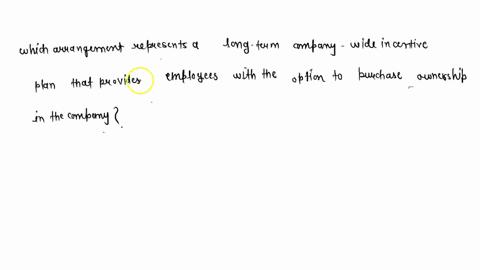 which arrangement represents a long-term company-wide incentive
plan that provides employees with the option to purchase ownership
in the company?